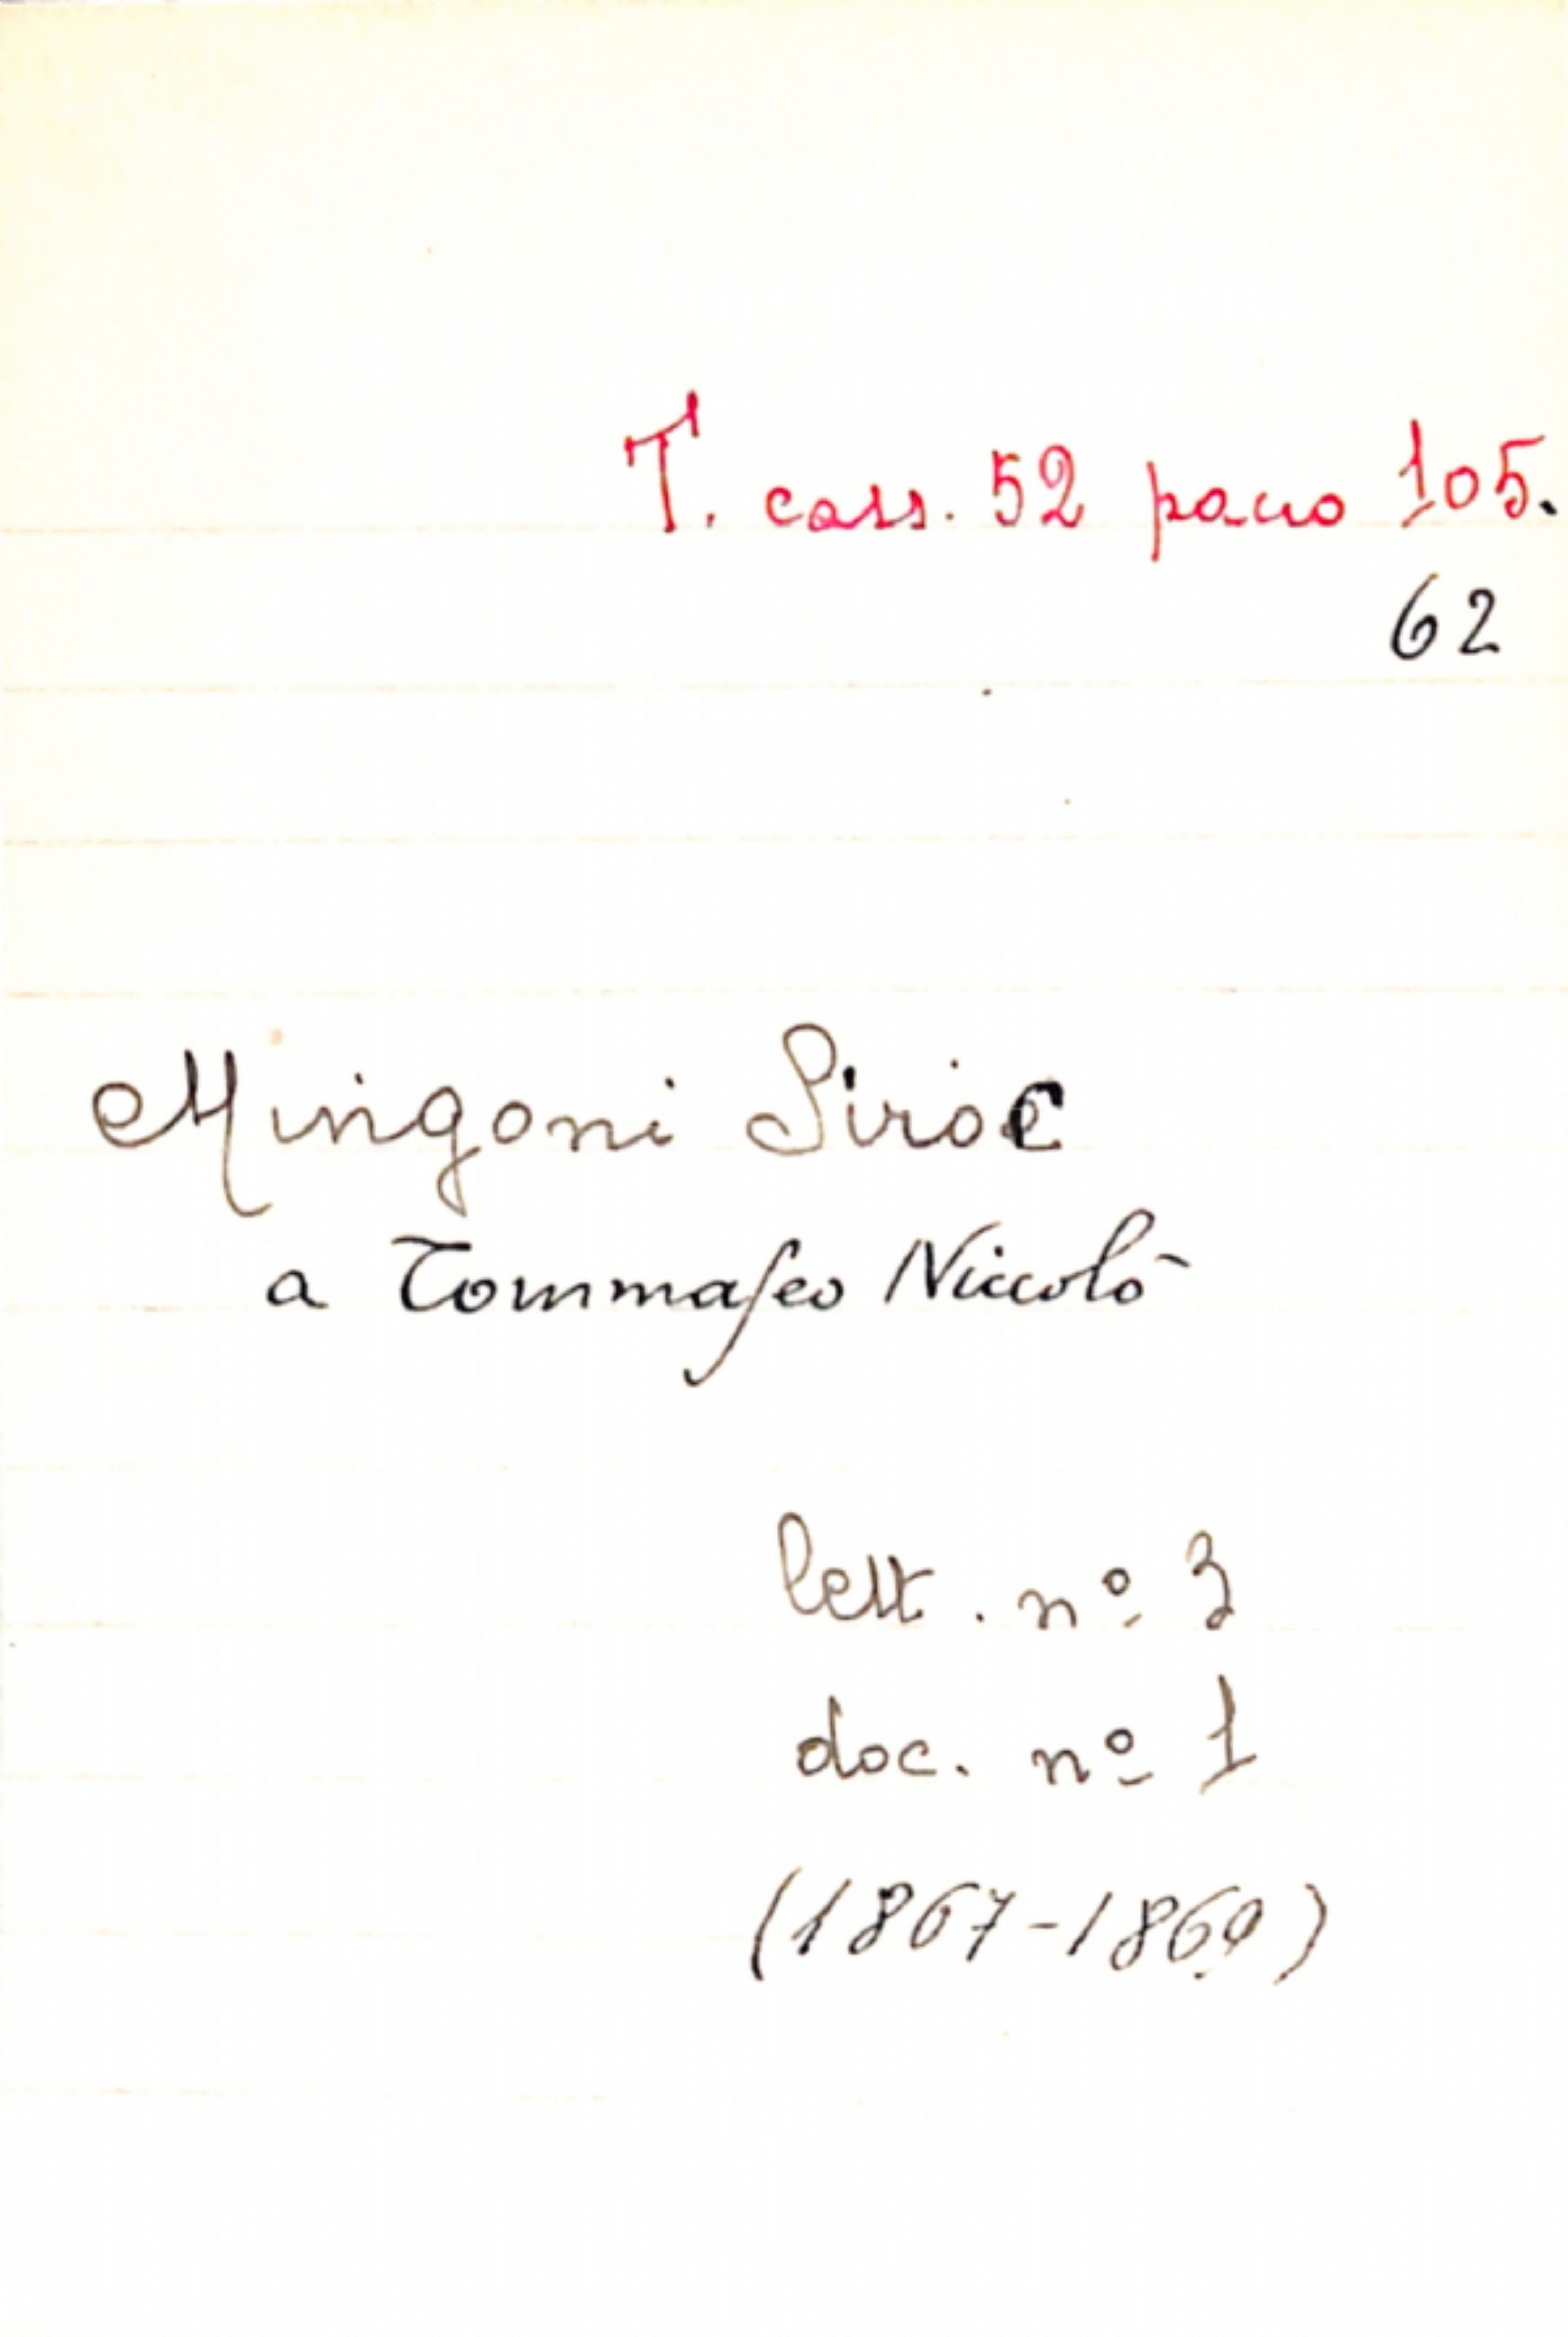 T. cass. 52 pacco 105.
62
Mingoni Siroe
a Tommaseo Niccolò
lett. nº 3
doc. nº 1
(1867-1869)